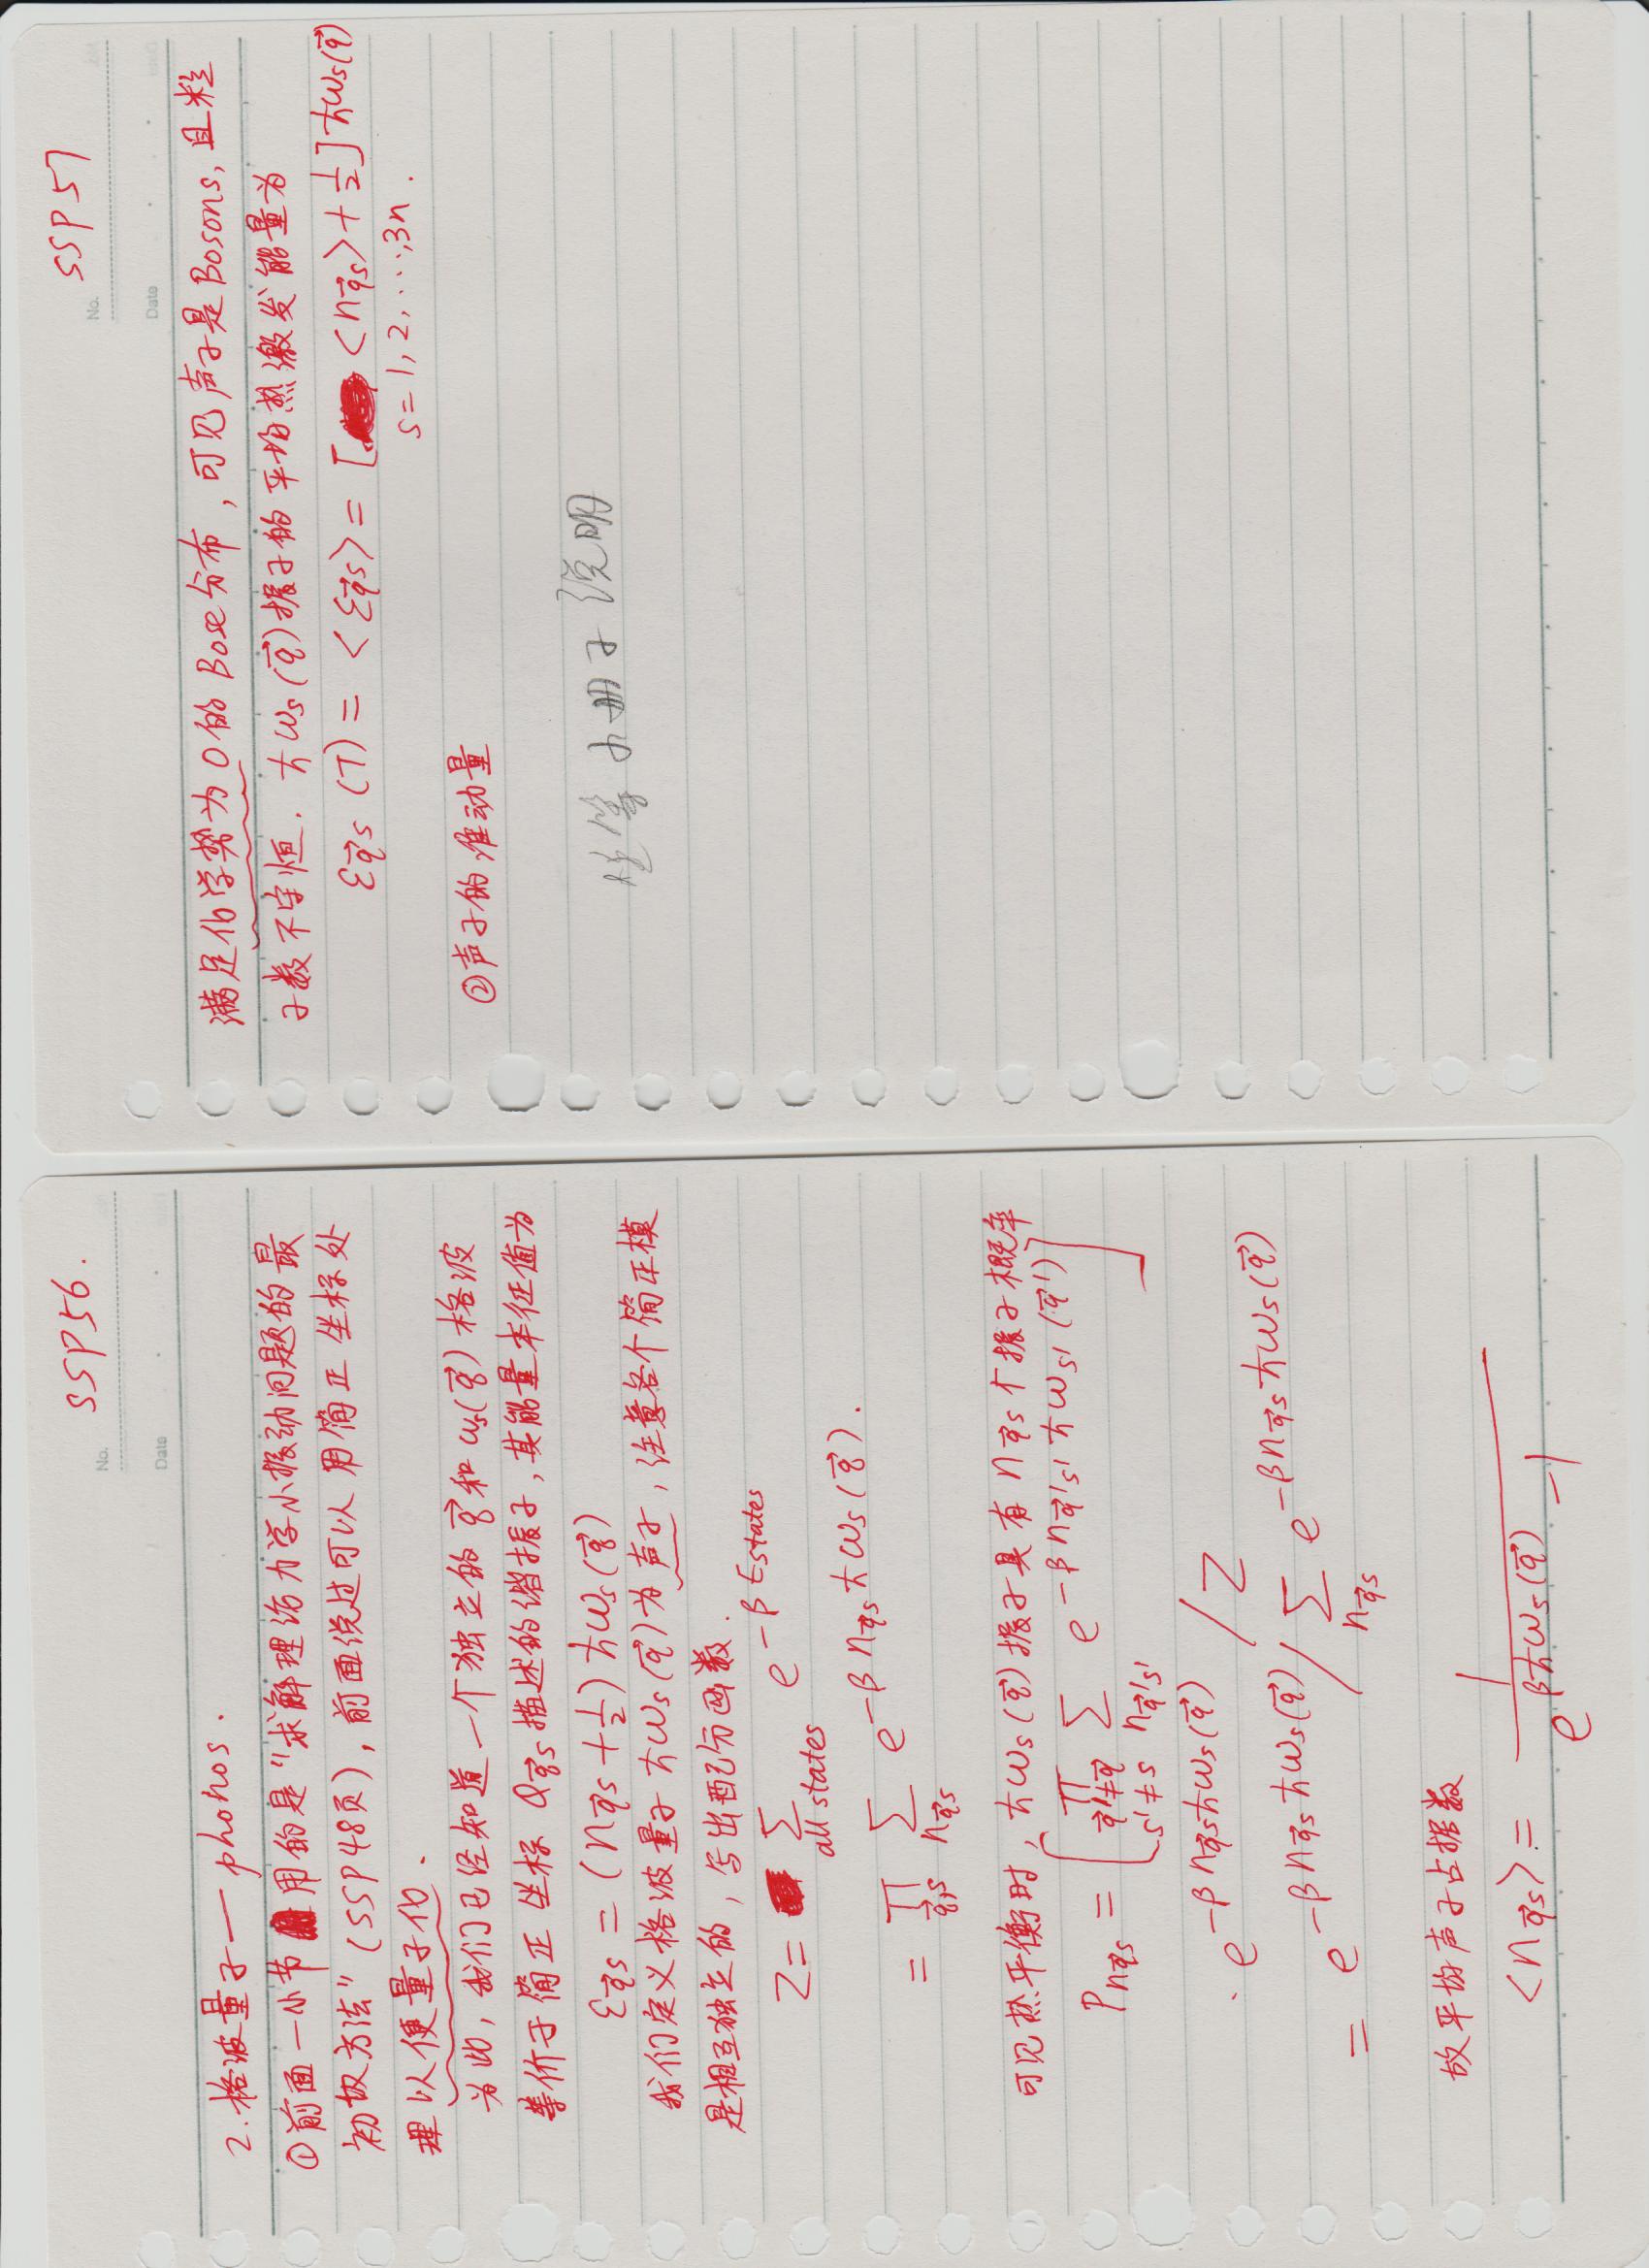 SSP56.
No.
Date
2.格波量子—phonos.
①前面一小节用的是"求解理论力学小振动问题的最
初级方法"(SSP48页),前面说过可以用简正坐标处
理以便量子化.
为此,我们已经知道一个独立的 $\vec{q}$ 和 $\omega_s(\vec{q})$ 格波
等价于简正坐标 $Q_{\vec{q}s}$ 描述的谐振子,其能量本征值为
$\varepsilon_{\vec{q}s} = (n_{\vec{q}s}+\frac{1}{2})\hbar\omega_s(\vec{q})$
我们定义格波量子 $\hbar\omega_s(\vec{q})$ 为声子,注意各个简正模
是相互独立的,写出配分函数.
$Z = \sum_{all\ states} e^{-\beta E_{states}}$
$= \prod_{\vec{q},s} \sum_{n_{\vec{q}s}} e^{-\beta n_{\vec{q}s}\hbar\omega_s(\vec{q})}.$
可见热平衡时,$\hbar\omega_s(\vec{q})$ 振子具有 $n_{\vec{q}s}$ 个振子概率
$P_{n_{\vec{q}s}} = \left[\prod_{\vec{q}'\neq\vec{q}\ s'\neq s} \sum_{n_{\vec{q}'s'}} e^{-\beta n_{\vec{q}'s'}\hbar\omega_{s'}(\vec{q}')}\right]$
$\cdot e^{-\beta n_{\vec{q}s}\hbar\omega_s(\vec{q})} / Z$
$= e^{-\beta n_{\vec{q}s}\hbar\omega_s(\vec{q})} / \sum_{n_{\vec{q}s}} e^{-\beta n_{\vec{q}s}\hbar\omega_s(\vec{q})}$
故平均声子占据数
$\langle n_{\vec{q}s}\rangle = \frac{1}{e^{\beta\hbar\omega_s(\vec{q})}-1}$
SSP57
No.
Date
满足化学势为0的Bose分布,可见声子是Bosons,且粒
子数不守恒. $\hbar\omega_s(\vec{q})$ 振子的平均热激发能量为
$\varepsilon_{\vec{q}s}(T) = \langle\varepsilon_{\vec{q}s}\rangle = [\langle n_{\vec{q}s}\rangle+\frac{1}{2}]\hbar\omega_s(\vec{q})$
$s=1,2,\cdots,3n.$
②声子的准动量
等小册子说明